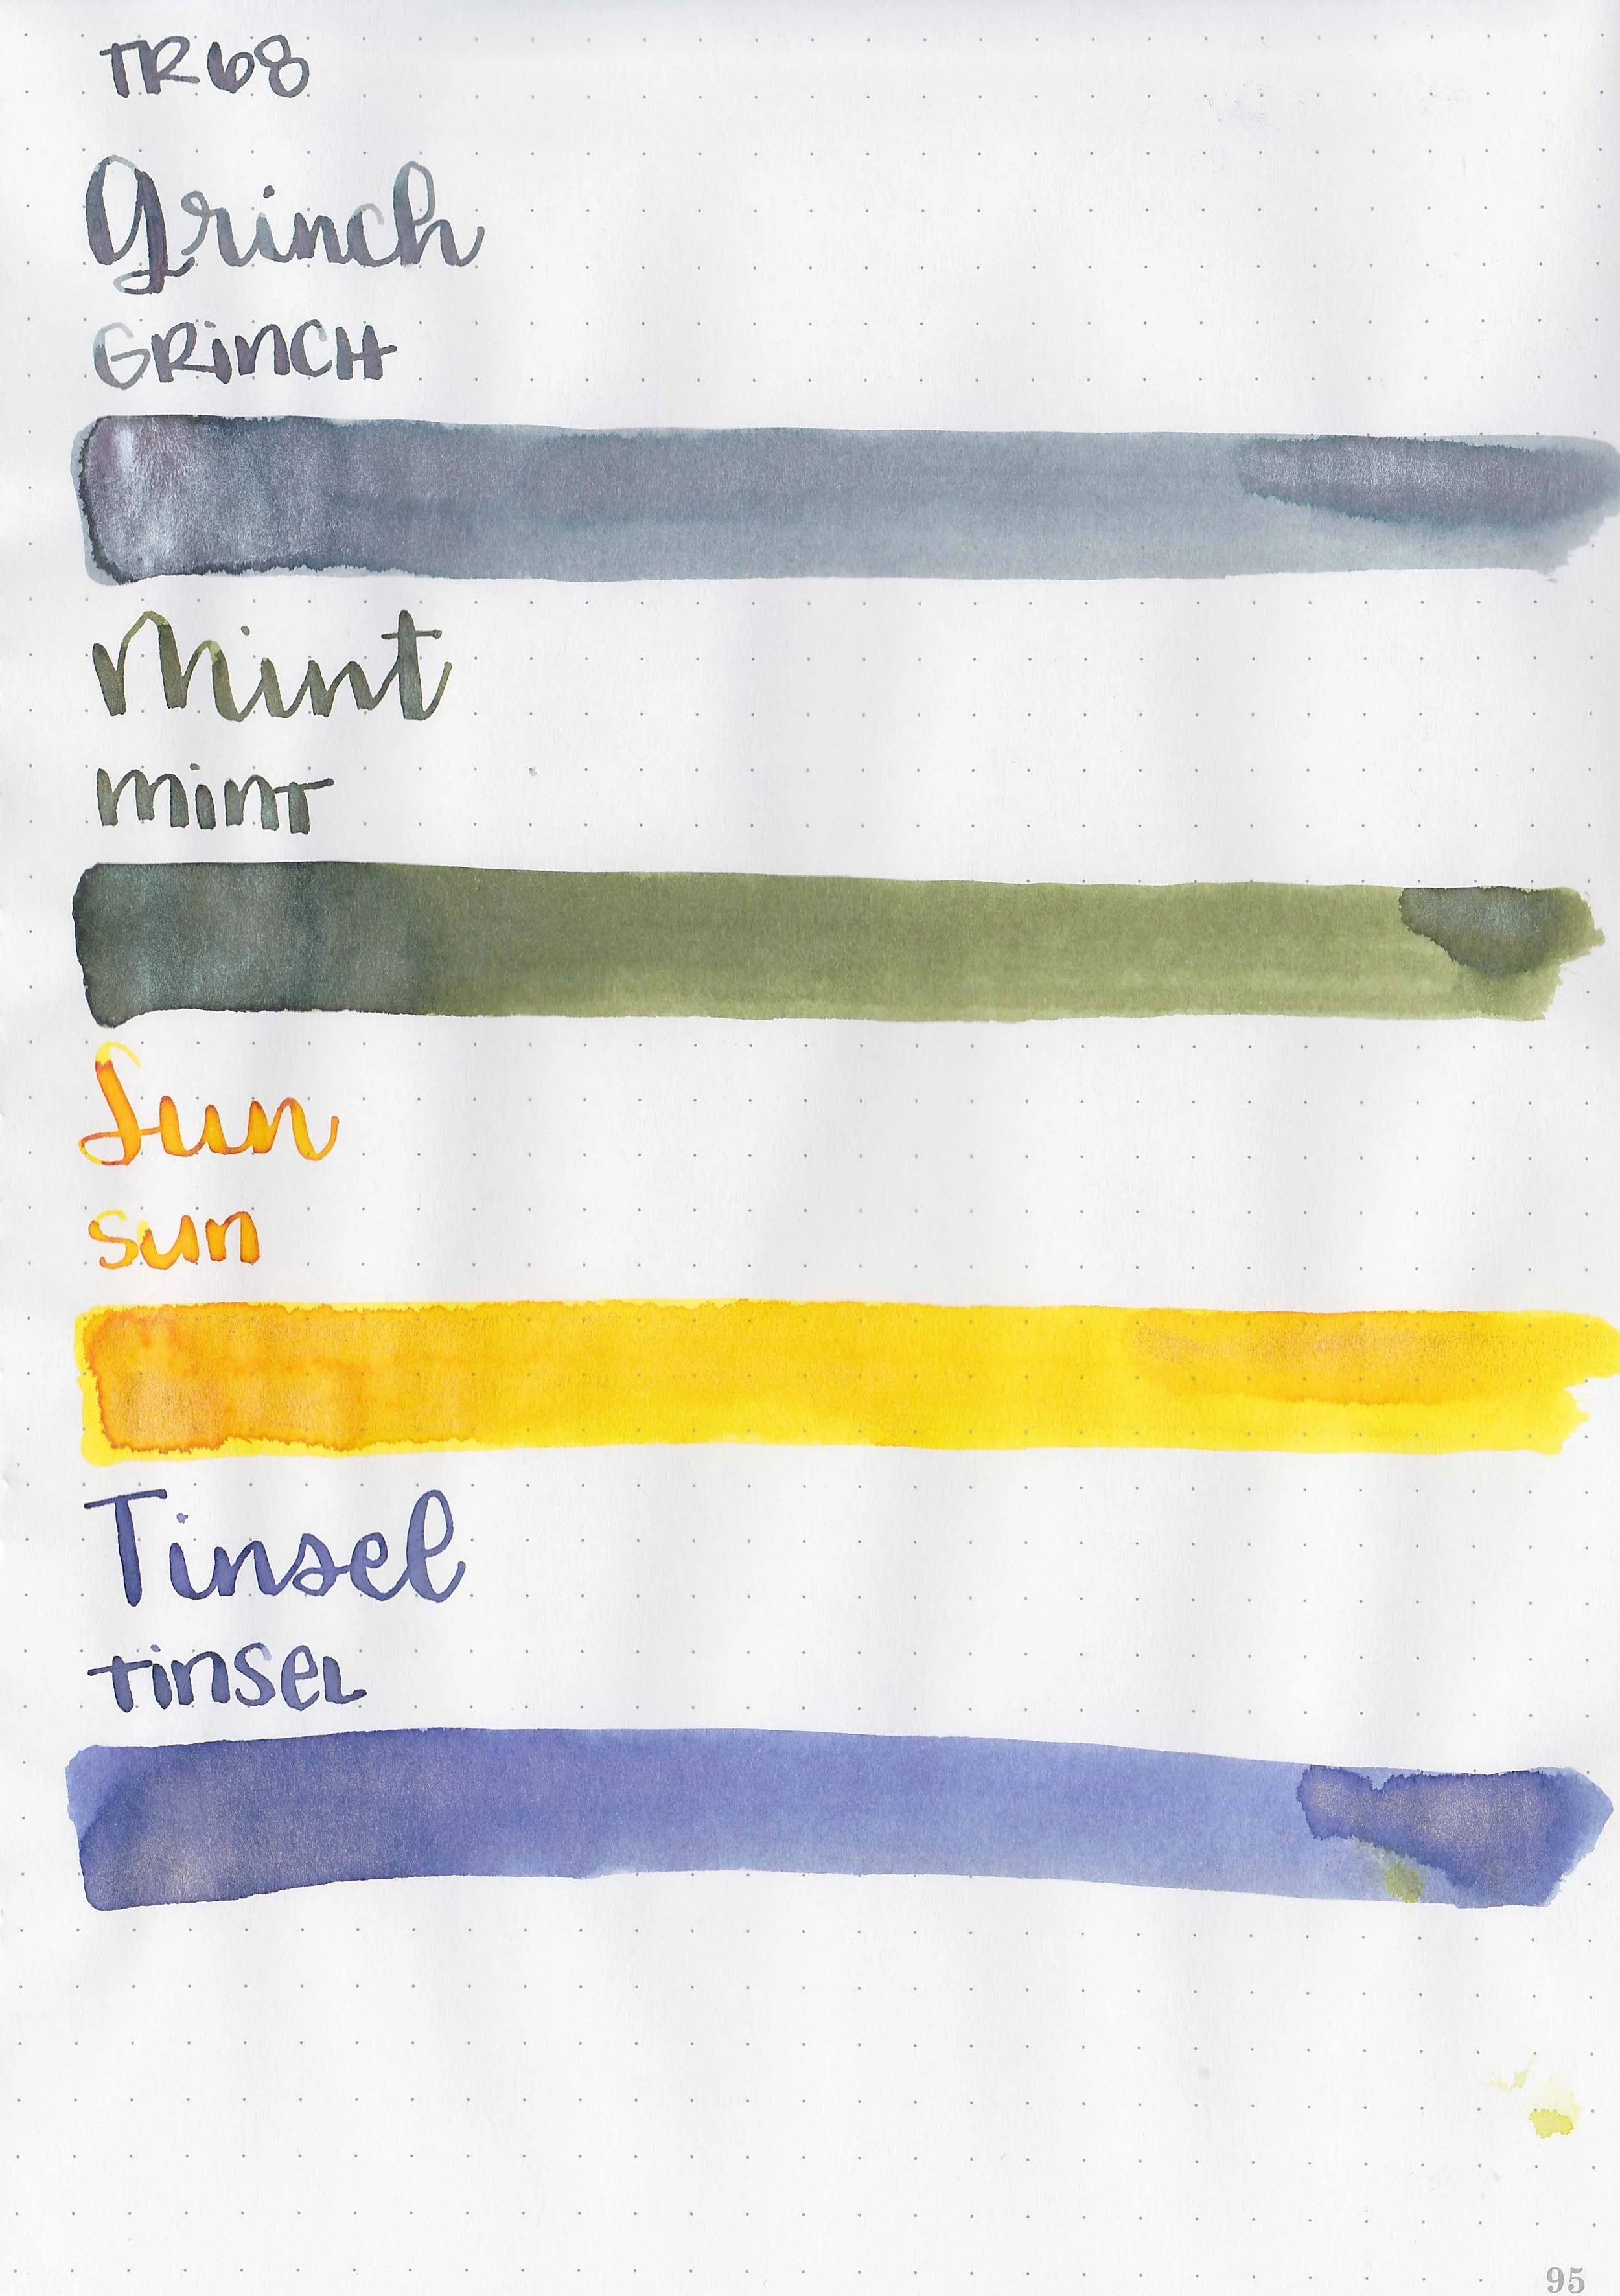 TR68
Grinch
GRINCH
Mint
mint
Sun
sun
Tinsel
Tinsel
95